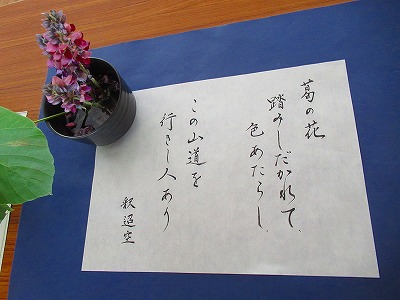 葛の花
踏みしだかれて、
色あたらし。
この山道を
行きし人あり
釈迢空